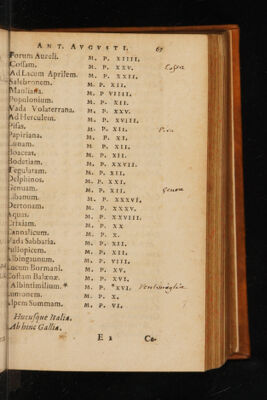 ANT. AVGVSTI. 67
Forum Aureli. M. P. XIIII.
Cossam. M. P. XXV. Cossa
Ad Lacum Aprilem. M. P. XXII.
Salebronem. M. P. XII.
Manliana. M. P VIIII.
Populonium. M. P. XII.
Vada Volaterrana. M. P. XXV.
Ad Herculem. M. P. XVIII.
Pisas. M. P. XII. Pisa
Papiriana. M. P. XI.
Lunam. M. P. XII.
Boaceas. M. P. XII.
Bodetiam. M. P. XXVII.
Tegulatam. M. P. XII.
Delphinos. M. P. XXI.
Genuam. M. P. XII. Genova
Libanum. M. P. XXXVI.
Dertonam. M. P. XXXV.
Aquas. M. P. XXVIII.
Crixiam. M. P. XX
Cannalicum. M. P. X.
Vada Sabbatia. M. P. XII.
Pullopicem. M. P. XII.
Albingaunum. M. P. VIII.
Lucum Bormani. M. P. XV.
Costam Balænæ. M. P. XVI.
Albintimilium.* M. P. *XVI. Ventimiglia
Lumonem. M. P. X.
Alpem Summam. M. P. VI.
Hucusque Italia.
Ab hinc Gallia.
E 2 Ce-